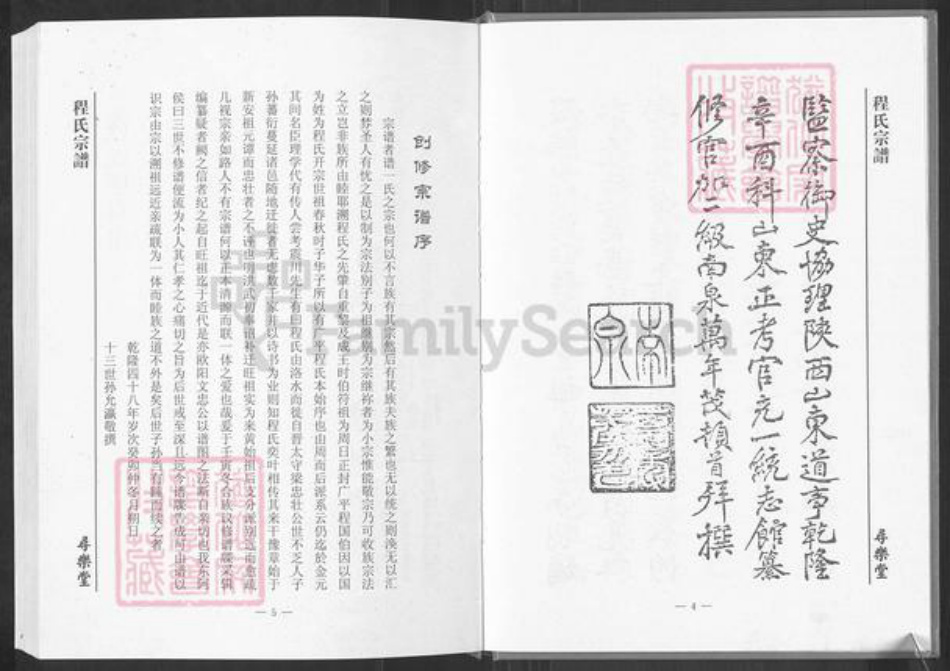 程氏宗譜
監察御史協理陝西山東道事乾隆
辛酉科山東正考官充一統志館纂
修官加二級南泉萬年茂頓首拜撰
南泉
尋樂堂
— 4 —
程氏宗譜
创修宗谱序
宗谱者谱一氏之宗也何以不言族有其宗然后有其族夫族之繁也无以统之则涣无以汇
之则棼圣人有忧之是以制为宗法别子为祖继别为宗继祢者为小宗惟能敬宗乃可收族宗法
之立岂非族所由睦耶溯程氏之先肇自重黎及成王时伯符祖为周日正封广平程国伯因以国
为姓为程氏开宗世祖春秋时子华子所以有广平程氏本始序也由周而后派系云仍迄於金元
其间名臣理学代有传人尝考震川先生有曰程氏由洛水而徙自晋太守梁忠壮公世不乏人子
孙蕃衍蔓延诸邑随地迁徙者无虑数千家并以诗书为业则知程氏奕叶相传其来于豫章始于
新安祖元谭而忠壮者之不诬也明洪武初奉诏补迁旺祖实为来黄始祖后支分派别远而愈疏
几视宗亲如路人不有宗谱何以正本清源而联一体之爱也哉爰于壬寅冬合族议修谱牒采辑
编纂疑者阙之信者纪之起自旺祖迄于近代是亦欧阳文忠公以谱图之法断自亲切也我东阿
侯曰三世不修谱便流为小人其仁孝之心痛切之旨为后世戒至深且远今谱牒告成可由谱以
识宗由宗以溯祖远近亲疏联为一体而睦族之道不外是矣后世子孙当有踵而续之者
乾隆四十八年岁次癸卯仲冬月朔日
十三世孙允瀛敬撰
尋樂堂
— 5 —
FamilySearch